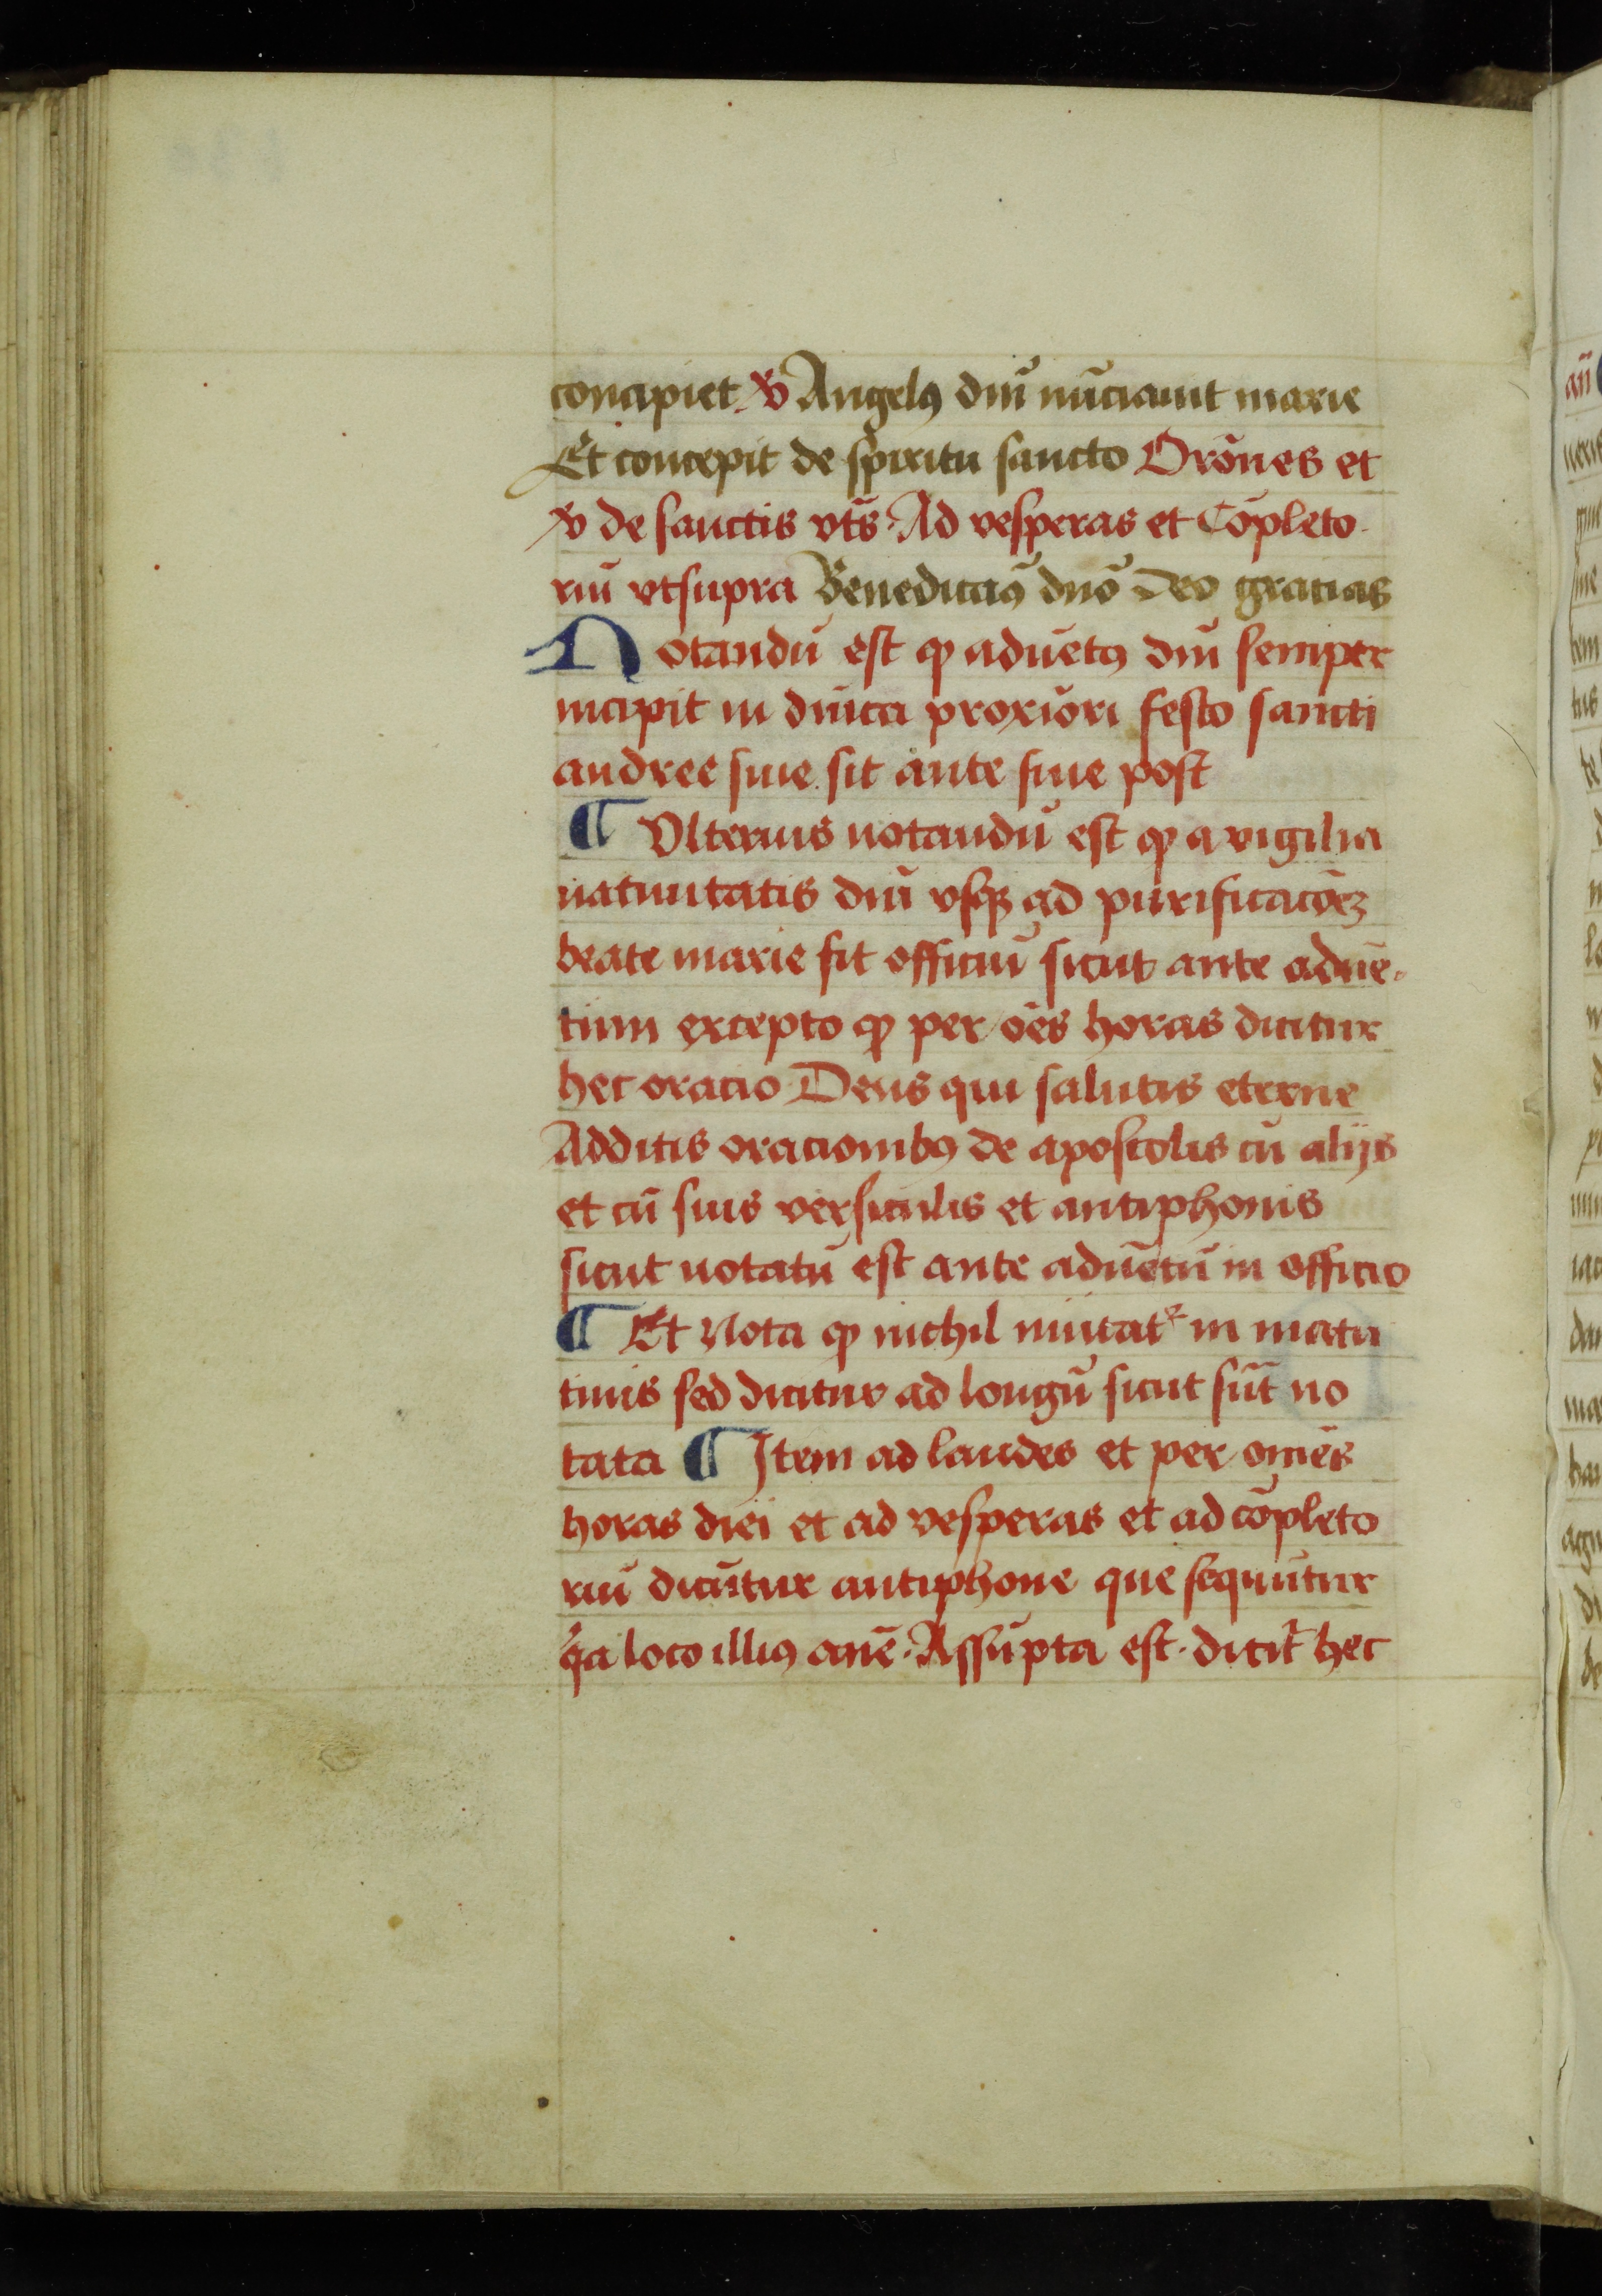 concipiet ℣ Angelꝰ dn̄i nūciauit marie
Et concepit de spiritu sancto Orōnes et
℣ de sanctis vts̄ Ad vesperas et Cōpleto
riū vtsupra Benedicamꝰ dn̄o Deo gratias
Notandū est ꝙ aduētꝰ dn̄i semper
incipit in dn̄ica proxīori festo sancti
andree siue sit ante siue post
¶ Vlterius notandū est ꝙ a vigilia
natiuitatis dn̄i vsqꝫ ad purificacōeꝫ
beate marie fit officiū sicut ante aduē-
tum excepto ꝙ per oēs horas dicitur
hec oracio Deus qui salutis eterne
Additis oracionibꝰ de apostolis cū alijs
et cū suis versiculis et antiphonis
sicut notatū est ante aduētū in officio
¶ Et Nota ꝙ nichil mutatᷣ in matu
tinis sed dicitur ad longū sicut sūt no
tata ¶ Item ad laudes et per om̄es
horas diei et ad vesperas et ad cōpleto
riū dicūtur antiphone que sequūtur
qͥa loco illiꝰ an̄e · Assūpta est · dicit̄ hec